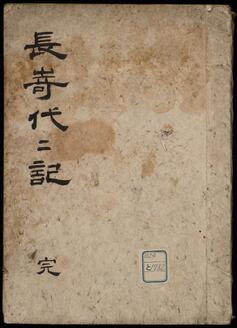 長嵜代〻記
完